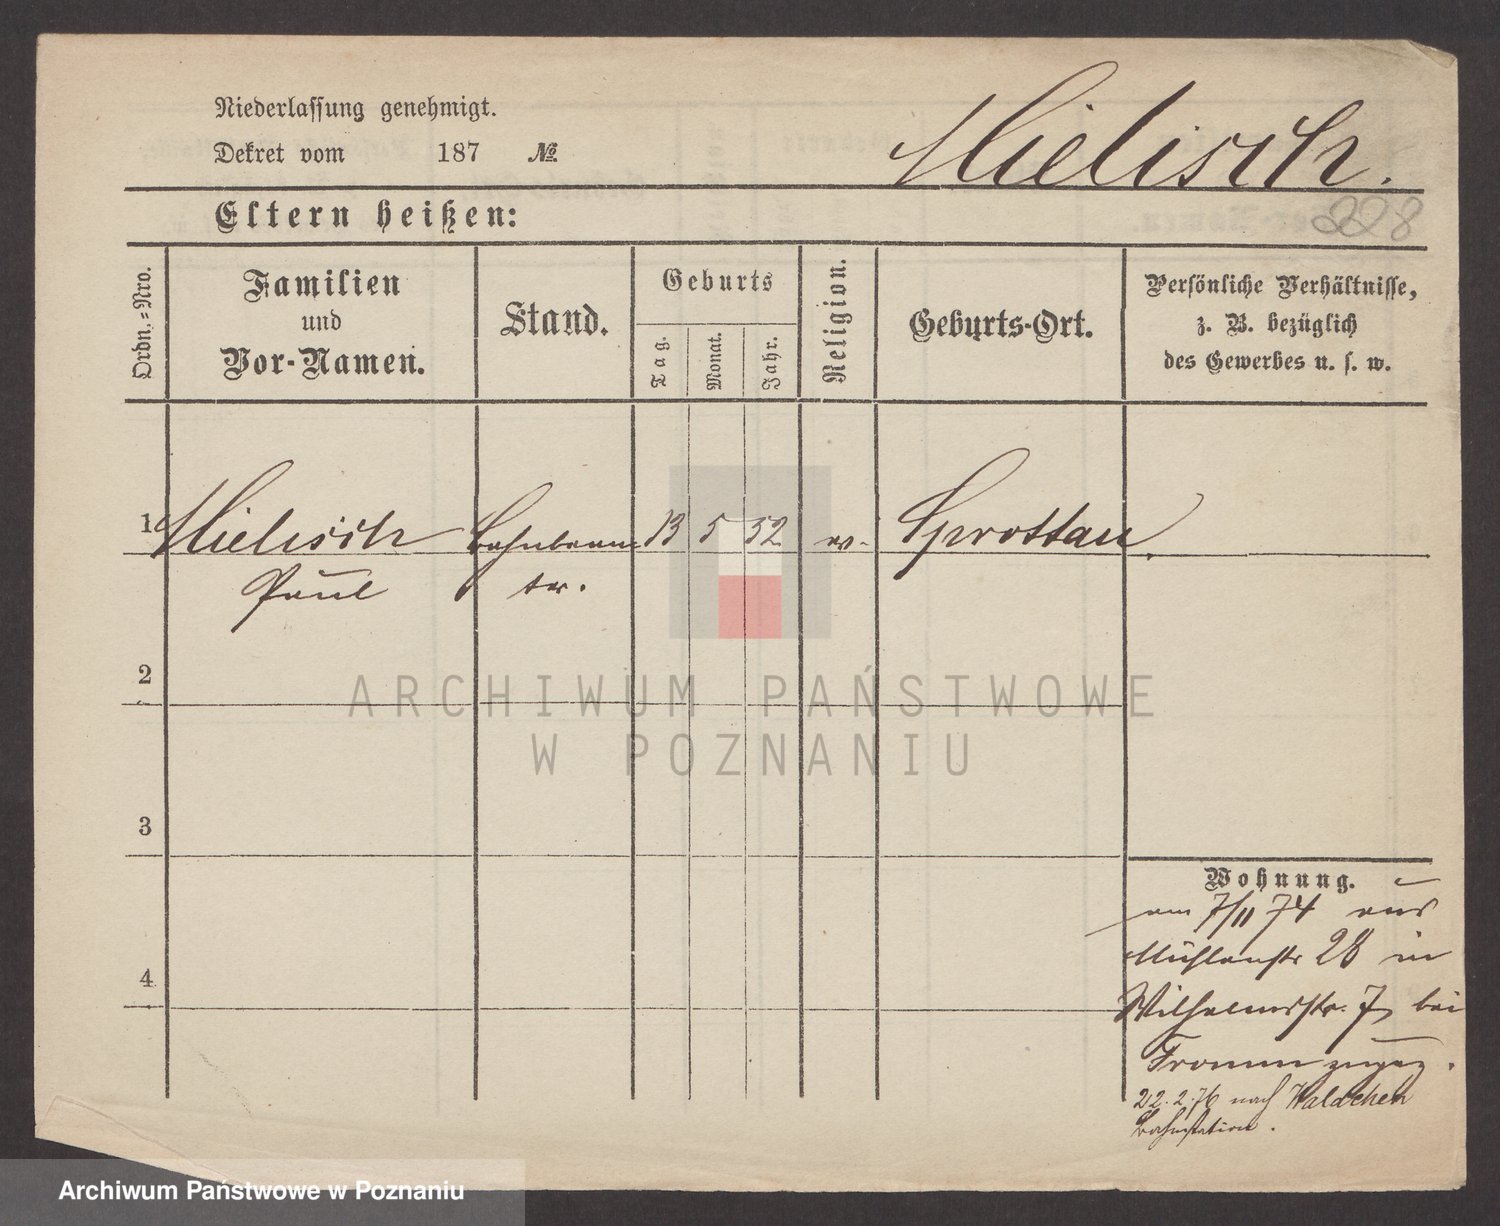 Niederlassung genehmigt.
Dekret vom 187 №
Mielisch.
Eltern heißen:
228
Ordn.=Nro.
Familien
und
Vor-Namen.
Stand.
Geburts
Tag.
Monat.
Jahr.
Religion.
Geburts-Ort.
Persönliche Verhältnisse,
z. B. bezüglich
des Gewerbes u. s. w.
1 Mielisch Bahnbeam 13 5 52 ev. Sprottau.
Paul ter.
2
ARCHIWUM PAŃSTWOWE
W POZNANIU
3
Wohnung.
am 7/11 74 aus
Mühlenstr 28 in
4
Wilhelmstr. 7 bei
Fromm zugez.
22.2.76 nach Waldchen
Bahnstation.
Archiwum Państwowe w Poznaniu